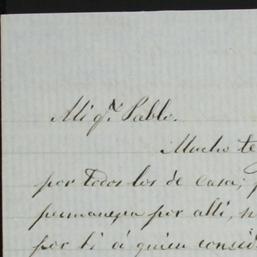 Mi q.º Pablo.
Mucho te
por todos los de casa;
permanezca por alli,
por ti á quien consid